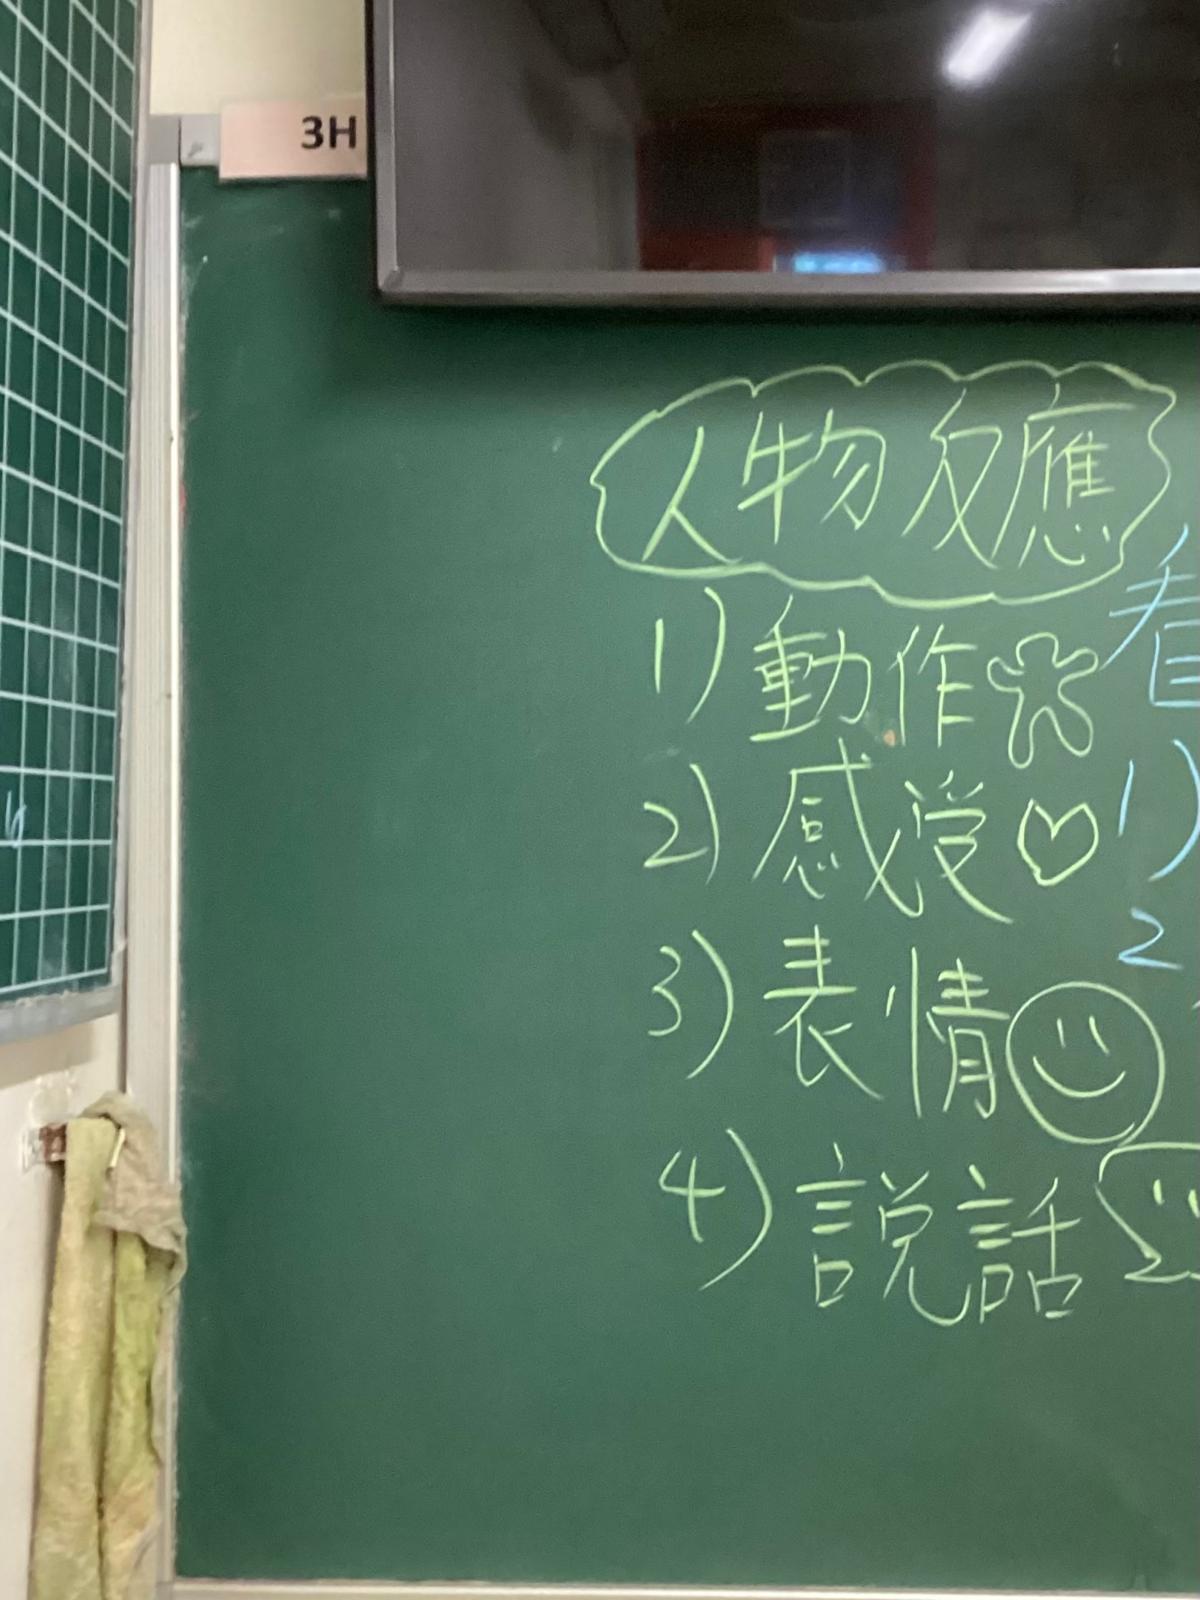 3H
人物反應
1) 動作
2) 感受
3) 表情
4) 說話
看
1)
2